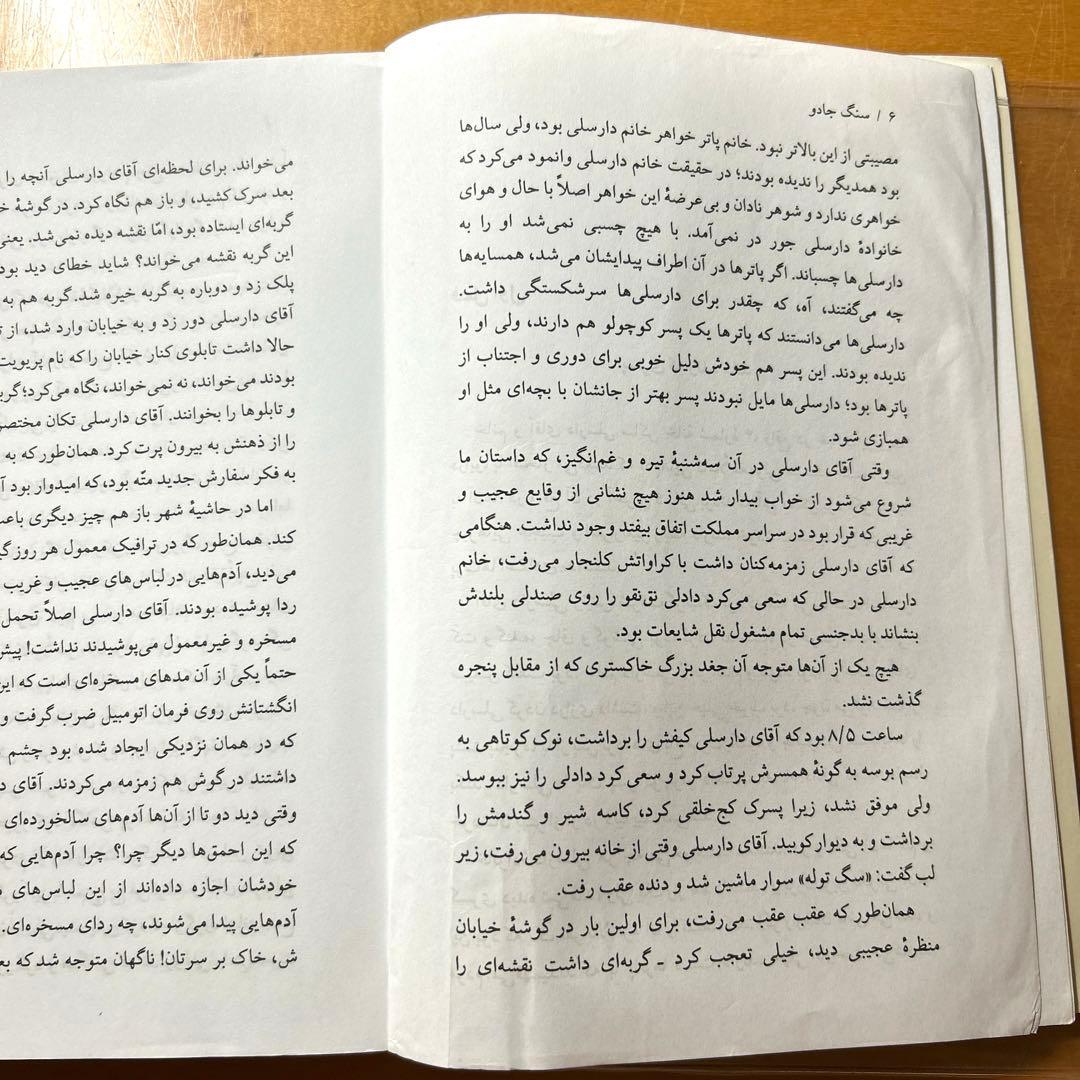 ۶ / سنگ جادو
مصیبتی از این بالاتر نبود. خانم پاتر خواهر خانم دارسلی بود، ولی سال‌ها
بود همدیگر را ندیده بودند؛ در حقیقت خانم دارسلی وانمود می‌کرد که
خواهری ندارد و شوهر نادان و بی‌عرضهٔ این خواهر اصلاً با حال و هوای
خانوادهٔ دارسلی جور در نمی‌آمد. با هیچ چسبی نمی‌شد او را به
دارسلی‌ها چسباند. اگر پاترها در آن اطراف پیدایشان می‌شد، همسایه‌ها
چه می‌گفتند، آه، که چقدر برای دارسلی‌ها سرشکستگی داشت.
دارسلی‌ها می‌دانستند که پاترها یک پسر کوچولو هم دارند، ولی او را
ندیده بودند. این پسر هم خودش دلیل خوبی برای دوری و اجتناب از
پاترها بود؛ دارسلی‌ها مایل نبودند پسر بهتر از جانشان با بچه‌ای مثل او
همبازی شود.
وقتی آقای دارسلی در آن سه‌شنبهٔ تیره و غم‌انگیز، که داستان ما
شروع می‌شود از خواب بیدار شد هنوز هیچ نشانی از وقایع عجیب و
غریبی که قرار بود در سراسر مملکت اتفاق بیفتد وجود نداشت. هنگامی
که آقای دارسلی زمزمه‌کنان داشت با کراواتش کلنجار می‌رفت، خانم
دارسلی در حالی که سعی می‌کرد دادلی نق‌نقو را روی صندلی بلندش
بنشاند با بدجنسی تمام مشغول نقل شایعات بود.
هیچ یک از آن‌ها متوجه آن جغد بزرگ خاکستری که از مقابل پنجره
گذشت نشد.
ساعت ۸/۵ بود که آقای دارسلی کیفش را برداشت، نوک کوتاهی به
رسم بوسه به گونهٔ همسرش پرتاب کرد و سعی کرد دادلی را نیز ببوسد.
ولی موفق نشد، زیرا پسرک کج‌خلقی کرد، کاسه شیر و گندمش را
برداشت و به دیوار کوبید. آقای دارسلی وقتی از خانه بیرون می‌رفت، زیر
لب گفت: «سگ توله» سوار ماشین شد و دنده عقب رفت.
همان‌طور که عقب عقب می‌رفت، برای اولین بار در گوشهٔ خیابان
منظرهٔ عجیبی دید، خیلی تعجب کرد ـ گربه‌ای داشت نقشه‌ای را
می‌خواند. برای لحظه‌ای آقای دارسلی آنچه را
بعد سرک کشید، و باز هم نگاه کرد. در گوشهٔ
گربه‌ای ایستاده بود، امّا نقشه دیده نمی‌شد. یعنی
این گربه نقشه می‌خواند؟ شاید خطای دید بود
پلک زد و دوباره به گربه خیره شد. گربه هم به
آقای دارسلی دور زد و به خیابان وارد شد، از
حالا داشت تابلوی کنار خیابان را که نام پریویت
بودند می‌خواند، نه نمی‌خواند، نگاه می‌کرد؛
و تابلوها را بخوانند. آقای دارسلی تکان مختصر
را از ذهنش به بیرون پرت کرد. همان‌طور که به
به فکر سفارش جدید متّه بود، که امیدوار بود
اما در حاشیهٔ شهر باز هم چیز دیگری
کند. همان‌طور که در ترافیک معمول هر روز
می‌دید، آدم‌هایی در لباس‌های عجیب و غریب
ردا پوشیده بودند. آقای دارسلی اصلاً تحمل
مسخره و غیرمعمول می‌پوشیدند نداشت!
حتماً یکی از آن مدهای مسخره‌ای است که این
انگشتانش روی فرمان اتومبیل ضرب گرفت و
که در همان نزدیکی ایجاد شده بود چشم
داشتند در گوش هم زمزمه می‌کردند. آقای
وقتی دید دو تا از آن‌ها آدم‌های سالخورده‌ای
که این احمق‌ها دیگر چرا؟ چرا آدم‌هایی که
خودشان اجازه داده‌اند از این لباس‌های
آدم‌هایی پیدا می‌شوند، چه ردای مسخره‌ای.
ش، خاک بر سرتان! ناگهان متوجه شد که